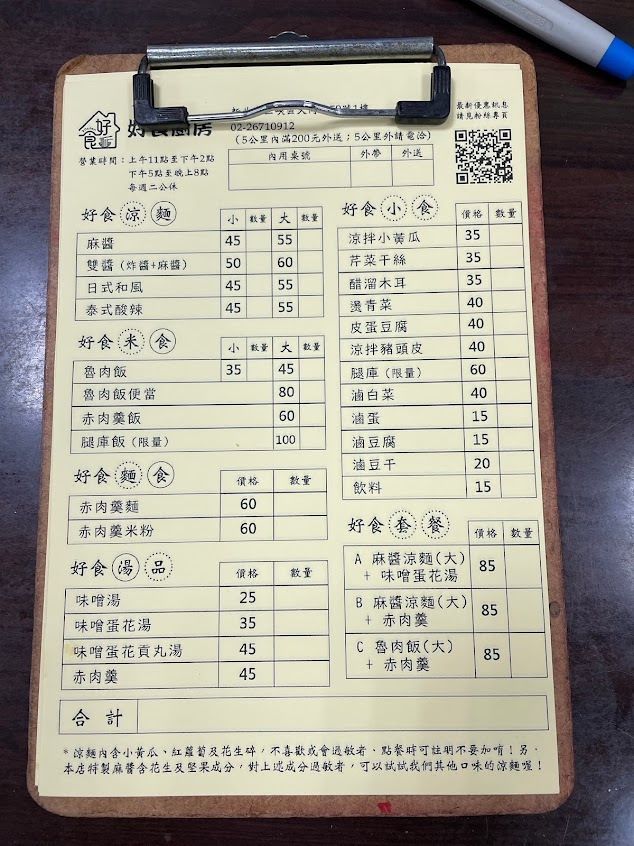 好食
好食廚房
02-26710912
(5公里內滿200元外送；5公里外請電洽)
最新優惠訊息
請見粉絲專頁
營業時間：上午11點至下午2點
下午5點至晚上8點
每週二公休
內用桌號 外帶 外送
好食涼麵 小 數量 大 數量
麻醬 45 55
雙醬(炸醬+麻醬) 50 60
日式和風 45 55
泰式酸辣 45 55
好食米食 小 數量 大 數量
魯肉飯 35 45
魯肉飯便當 80
赤肉羹飯 60
腿庫飯(限量) 100
好食麵食 價格 數量
赤肉羹麵 60
赤肉羹米粉 60
好食湯品 價格 數量
味噌湯 25
味噌蛋花湯 35
味噌蛋花貢丸湯 45
赤肉羹 45
好食小食 價格 數量
涼拌小黃瓜 35
芹菜干絲 35
醋溜木耳 35
燙青菜 40
皮蛋豆腐 40
涼拌豬頭皮 40
腿庫(限量) 60
滷白菜 40
滷蛋 15
滷豆腐 15
滷豆干 20
飲料 15
好食套餐 價格 數量
A 麻醬涼麵(大)
+ 味噌蛋花湯 85
B 麻醬涼麵(大)
+ 赤肉羹 85
C 魯肉飯(大)
+ 赤肉羹 85
合計
*涼麵內含小黃瓜、紅蘿蔔及花生碎，不喜歡或會過敏者，點餐時可註明不要加唷！另，
本店特製麻醬含花生及堅果成分，對上述成分過敏者，可以試試我們其他口味的涼麵喔！